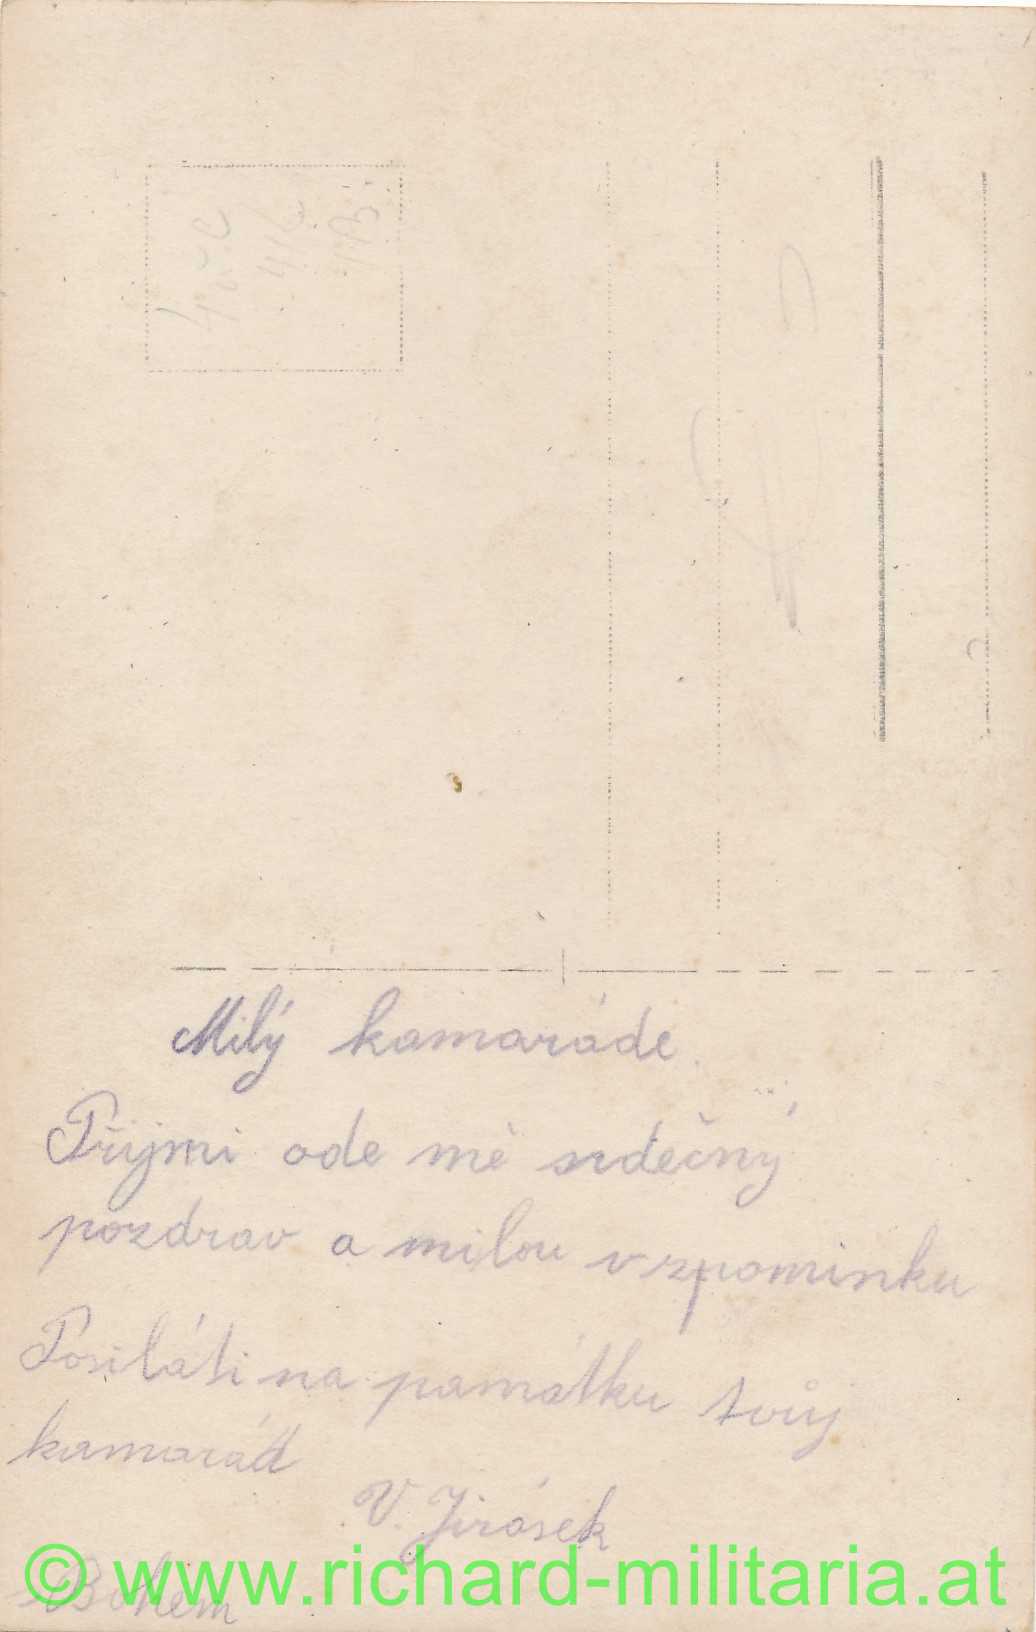 Milý kamaráde.
Přijmi ode mě srdečný
pozdrav a milou vzpominku
Posiláti na památku tvůj
kamarád
V. Jirásek
© www.richard-militaria.at